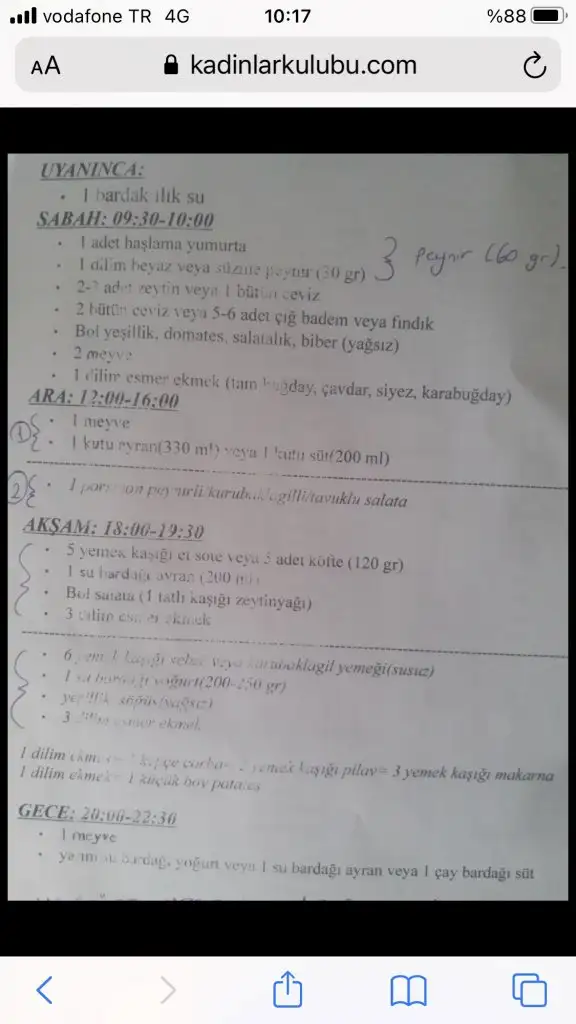 vodafone TR 4G 10:17 %88
AA kadinlarkulubu.com
UYANINCA:
• 1 bardak ılık su
SABAH: 09:30-10:00
• 1 adet haşlama yumurta
• 1 dilim beyaz veya süzme peynir (30 gr) } peynir (60 gr).
• 2-3 adet zeytin veya 1 bütün ceviz
• 2 bütün ceviz veya 5-6 adet çığ badem veya fındık
• Bol yeşillik, domates, salatalık, biber (yağsız)
• 2 meyve
• 1 dilim esmer ekmek (tam buğday, çavdar, siyez, karabuğday)
ARA: 12:00-16:00
① { • 1 meyve
• 1 kutu ayran(330 ml) veya 1 kutu süt(200 ml)
2 { • 1 porsiyon peynirli/kurubaklagilli/tavuklu salata
AKŞAM: 18:00-19:30
• 5 yemek kaşığı et sote veya 3 adet köfte (120 gr)
• 1 su bardağı ayran (200 ml)
• Bol salata (1 tatlı kaşığı zeytinyağı)
• 3 dilim esmer ekmek
• 6 yemek kaşığı sebze veya kurubaklagil yemeği(susuz)
• 1 su bardağı yoğurt(200-250 gr)
• yeşillik söğüş(yağsız)
• 3 dilim esmer ekmek
1 dilim ekmek= 1 kepçe çorba= 2 yemek kaşığı pilav= 3 yemek kaşığı makarna
1 dilim ekmek= 1 küçük boy patates
GECE: 20:00-22:30
• 1 meyve
• yarım su bardağı yoğurt veya 1 su bardağı ayran veya 1 çay bardağı süt